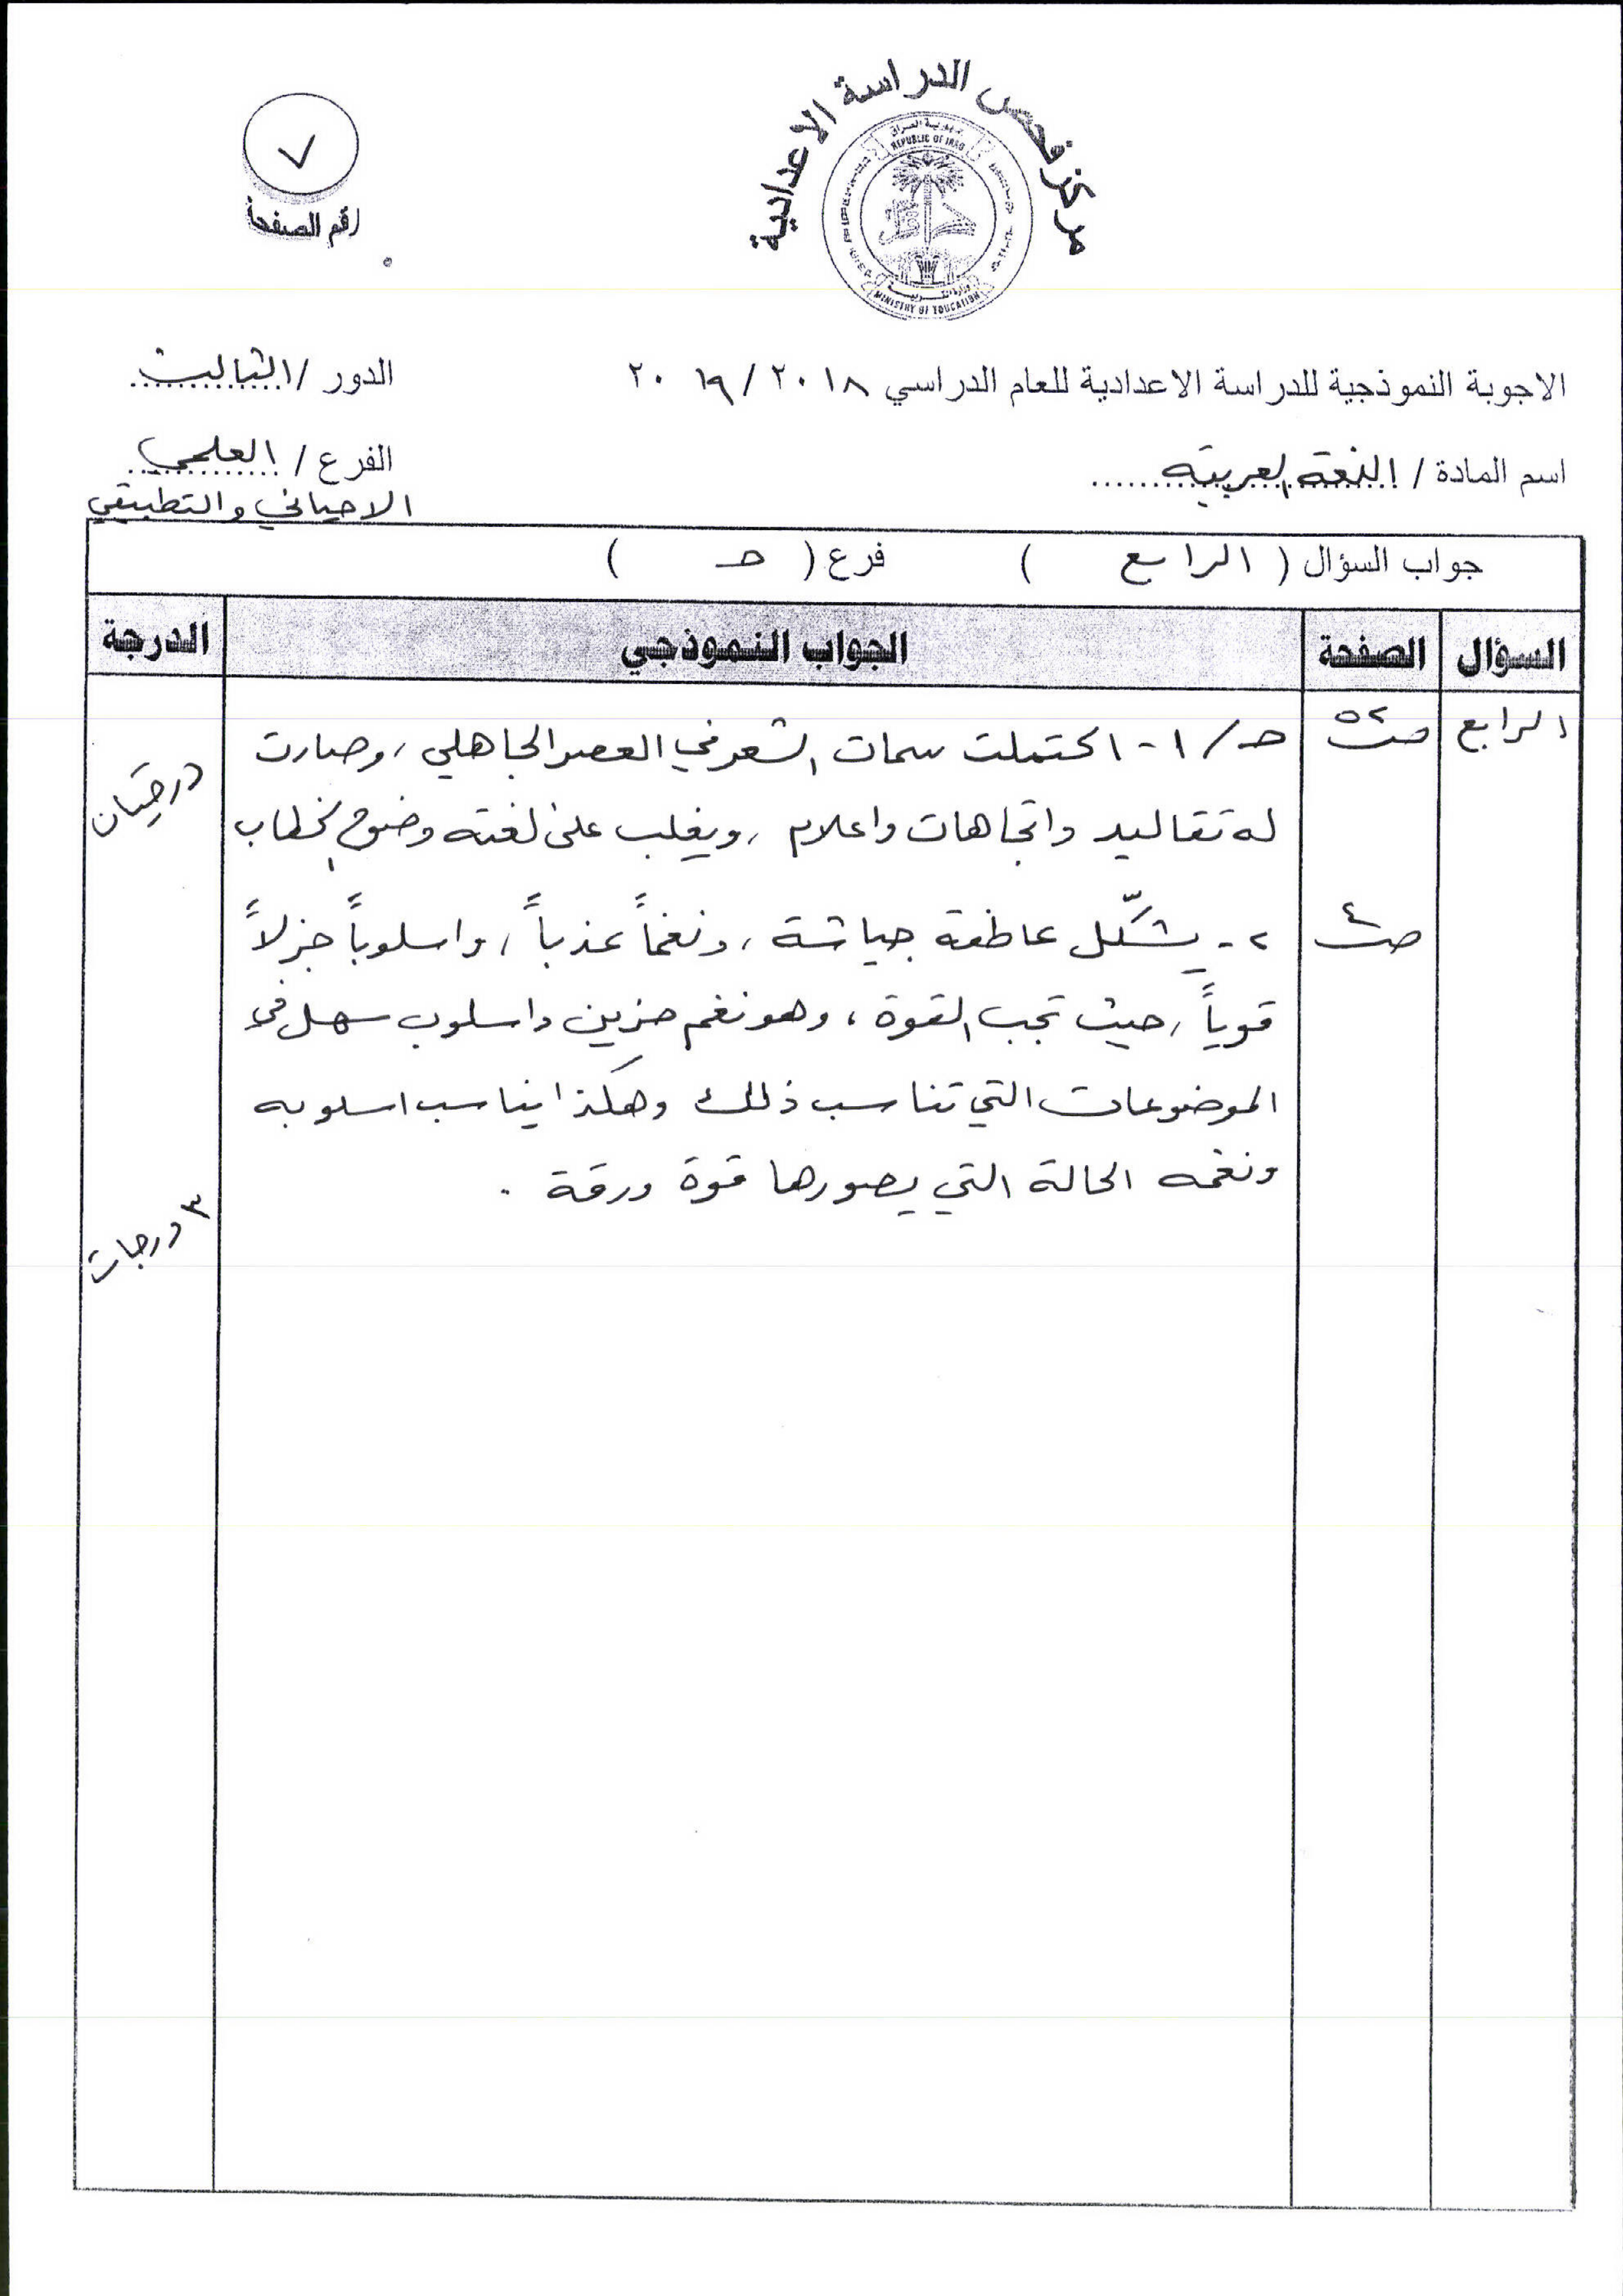 مركز فحص الدراسة الاعدادية
جمهورية العراق
REPUBLIC OF IRAQ
وزارة التربية
MINISTRY OF EDUCATION
٧
رقم الصفحة
الاجوبة النموذجية للدراسة الاعدادية للعام الدراسي ٢٠١٨ / ٢٠١٩
الدور / الثالث
اسم المادة / اللغة العربية
الفرع / العلمي
الاحيائي والتطبيقي
جواب السؤال ( الرابع ) فرع ( حـ )
السؤال الصفحة الجواب النموذجي الدرجة
الرابع ص٥٢ حـ / ١ - اكتملت سمات الشعر في العصر الجاهلي ، وصارت
درجتان
له تقاليد واتجاهات واعلام ، ويغلب على لغته وضوح الخطاب
ص٤ ٢ - يشكّل عاطفة جياشة ، ونغماً عذباً ، واسلوباً جزلاً
قوياً ، حيث تجب القوة ، وهو نغم حزين واسلوب سهل في
الموضوعات التي تناسب ذلك وهكذا يناسب اسلوبه
ونغمه الحالة التي يصورها قوة ورقة .
٣ درجات